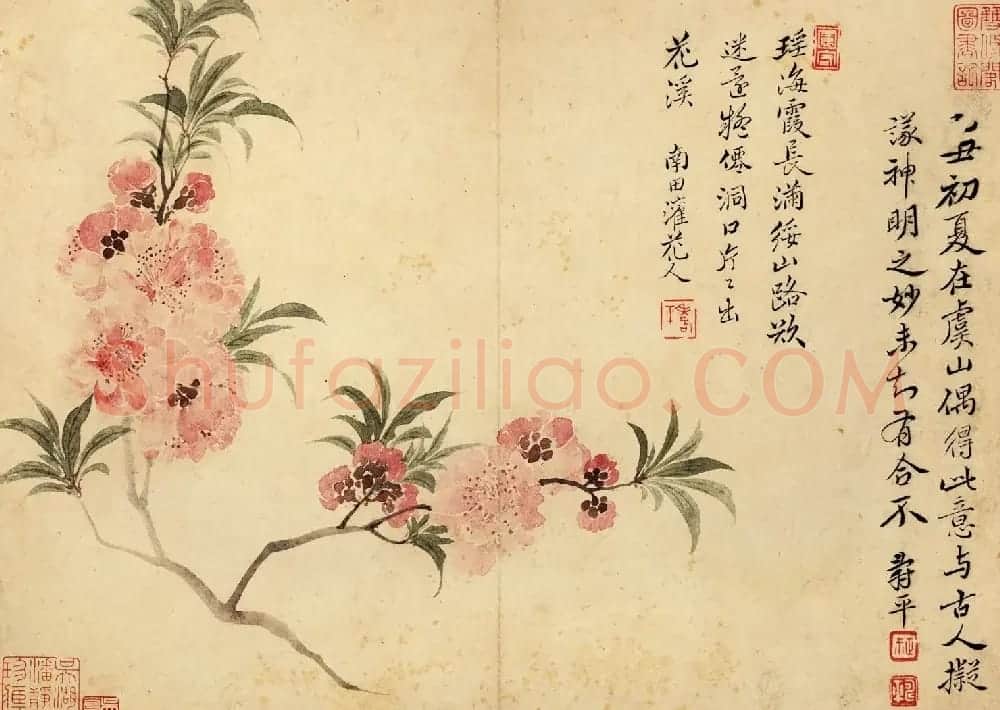 乙丑初夏在虞山偶得此意与古人擬
議神明之妙未知有合不 壽平
瑤海霞長滿綏山路欲
迷還疑僊洞口片〻出
花溪 南田灌花人
shufaziliao.COM